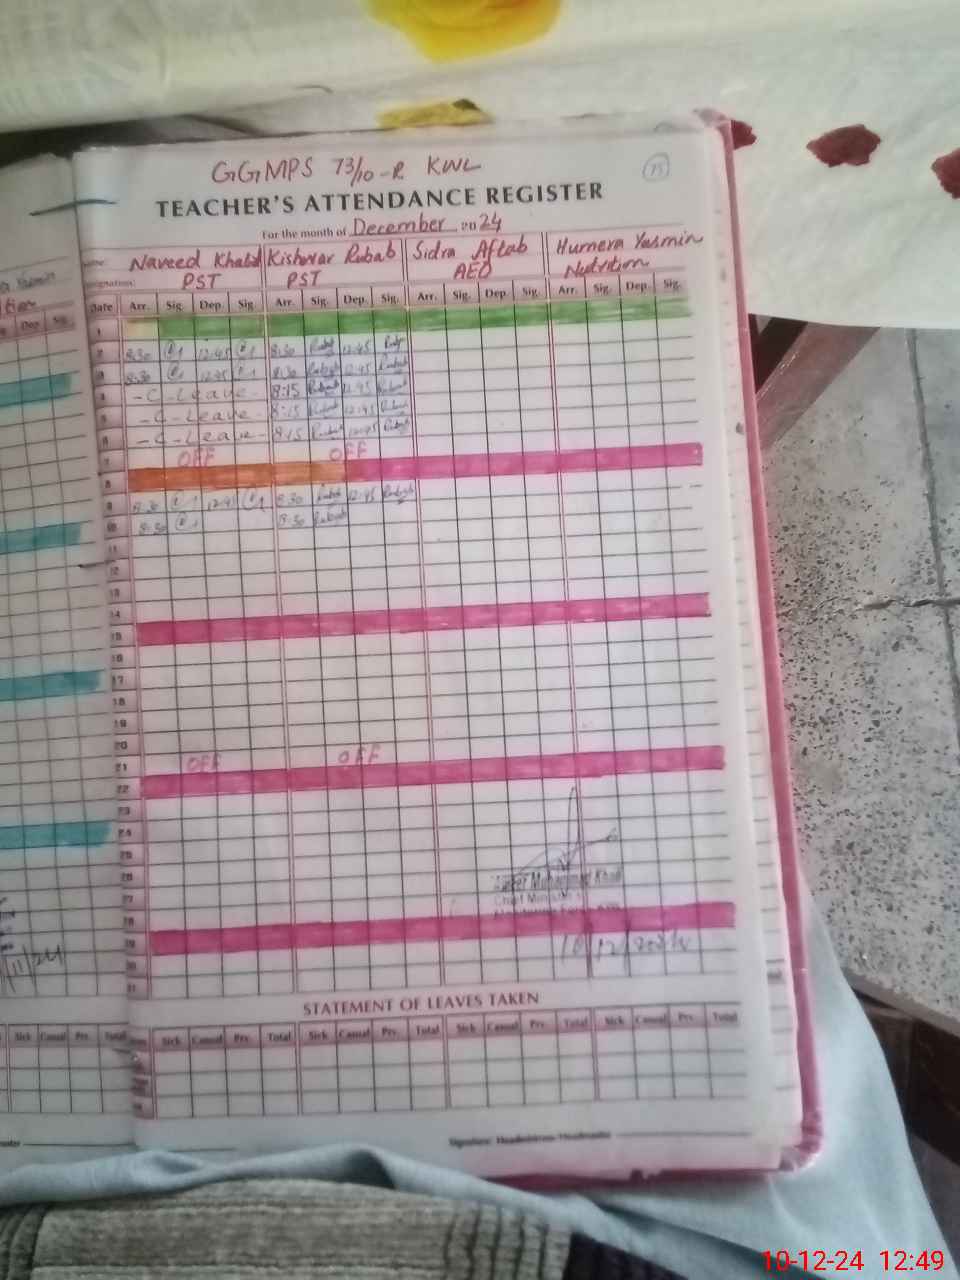 GGMPS 73/10-R KWL
75
TEACHER'S ATTENDANCE REGISTER
For the month of December 2024
Name: Naveed Khalid Kishwar Rubab Sidra Aftab Humera Yasmin
Designation: PST PST AEO Nutrition
Date Arr. Sig. Dep. Sig. Arr. Sig. Dep. Sig. Arr. Sig. Dep. Sig. Arr. Sig. Dep. Sig.
1
2 8:30 12:45 8:30 Rubab 12:45 Rubab
3 8:30 12:45 8:30 Rubab 12:45 Rubab
4 - C - Leave - 8:15 Rubab 12:45 Rubab
5 - C - Leave - 8:15 Rubab 12:45 Rubab
6 - C - Leave - 8:15 Rubab 12:45 Rubab
7 OFF OFF
8
9 8:30 12:45 8:30 Rubab 12:45 Rubab
10 8:30 8:30 Rubab
11
12
13
14
15
16
17
18
19
20
21 OFF OFF
22
23
24
25
26
27
Chief Minister's
28
29
10/12/2024
30
31
STATEMENT OF LEAVES TAKEN
Sick Casual Prv. Total Sick Casual Prv. Total Sick Casual Prv. Total Sick Casual Prv. Total
Signature: Headmistress/Headmaster
Dep. Sig.
Sick Casual Prv. Total
10-12-24 12:49